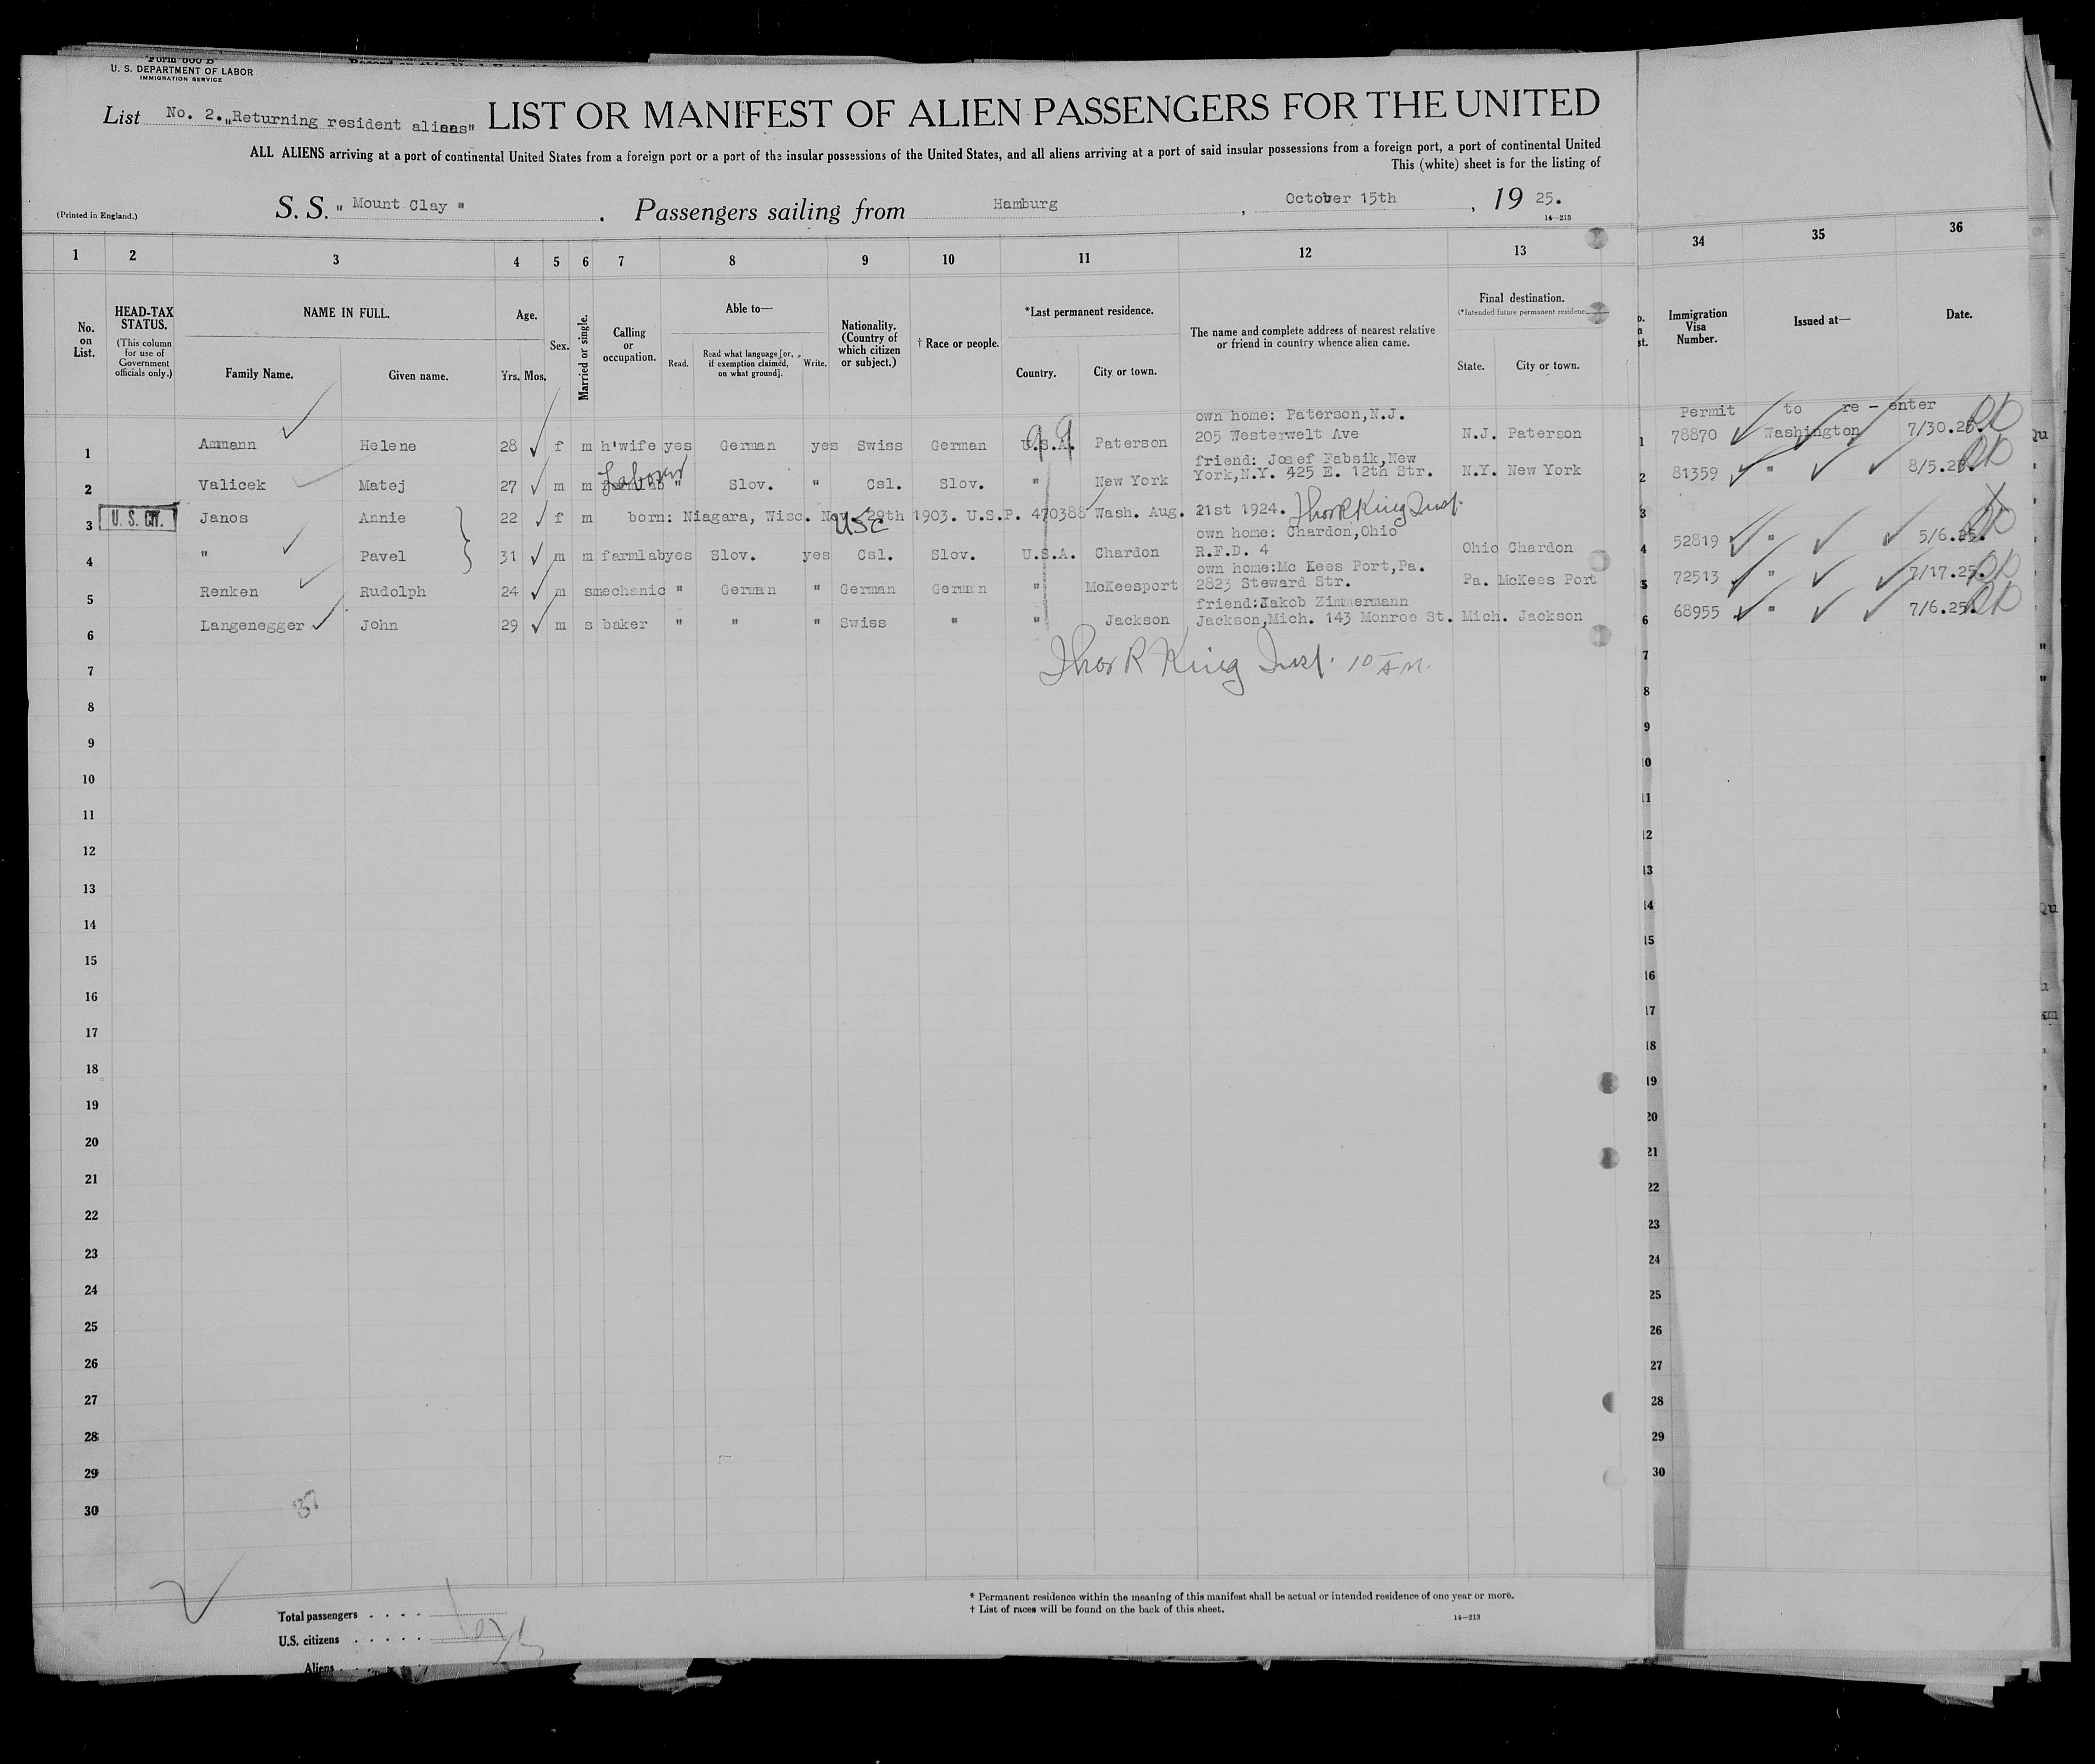 Form 600 B
U. S. DEPARTMENT OF LABOR
IMMIGRATION SERVICE
List No. 2. „Returning resident aliens" LIST OR MANIFEST OF ALIEN PASSENGERS FOR THE UNITED
ALL ALIENS arriving at a port of continental United States from a foreign port or a port of the insular possessions of the United States, and all aliens arriving at a port of said insular possessions from a foreign port, a port of continental United
This (white) sheet is for the listing of
(Printed in England.) S. S. " Mount Clay " . Passengers sailing from Hamburg , October 15th , 19 25.
14—213
1 2 3 4 5 6 7 8 9 10 11 12 13 34 35 36
No. on List. HEAD-TAX STATUS. (This column for use of Government officials only.) NAME IN FULL. Family Name. Given name. Age. Yrs. Mos. Sex. Married or single. Calling or occupation. Able to— Read. Read what language [or, if exemption claimed, on what ground]. Write. Nationality. (Country of which citizen or subject.) † Race or people. *Last permanent residence. Country. City or town. The name and complete address of nearest relative or friend in country whence alien came. Final destination. (*Intended future permanent residence State. City or town. Immigration Visa Number. Issued at— Date.
own home: Paterson,N.J. Permit to re - enter
1 Ammann Helene 28 f m h'wife yes German yes Swiss German U.S.A. Paterson 205 Westerwelt Ave N.J. Paterson 1 78870 Washington 7/30.25.
friend: Josef Fabsik,New
2 Valicek Matej 27 m m Laborer " Slov. " Csl. Slov. " New York York,N.Y. 425 E. 12th Str. N.Y. New York 2 81359 " 8/5.25.
3 U. S. CIT. Janos Annie 22 f m born: Niagara, Wisc. Nov. 29th 1903. U.S.P. 470388 Wash. Aug. 21st 1924. Thor R King Insp. 3
USC
own home: Chardon,Ohio
4 " Pavel 31 m m farmlab yes Slov. yes Csl. Slov. U.S.A. Chardon R.F.D. 4 Ohio Chardon 4 52819 " 5/6.25.
own home:Mc Kees Port,Pa.
5 Renken Rudolph 24 m s mechanic " German " German German " McKeesport 2823 Steward Str. Pa. McKees Port 5 72513 " 7/17.25.
friend:Jakob Zimmermann
6 Langenegger John 29 m s baker " " " Swiss " " Jackson Jackson,Mich. 143 Monroe St. Mich. Jackson 6 68955 " 7/6.25.
Thor R King Insp. 10 AM.
7 7
8 8
9 9
10 10
11 11
12 12
13 13
14 14
15 15
16 16
17 17
18 18
19 19
20 20
21 21
22 22
23 23
24 24
25 25
26 26
27 27
28 28
29 29
30 30
* Permanent residence within the meaning of this manifest shall be actual or intended residence of one year or more.
† List of races will be found on the back of this sheet.
14—213
Total passengers . . . .
U.S. citizens . . . . .
Aliens